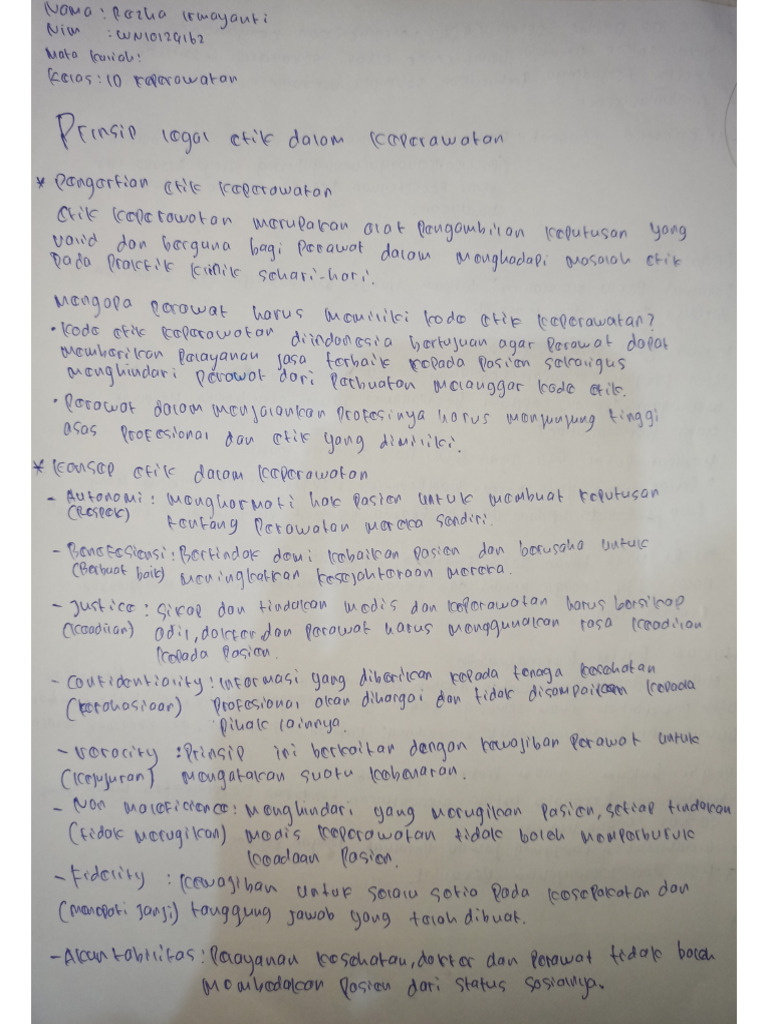 Nama : Rezha Irmayanti
Nim : WN10124162
Mata kuliah:
Kelas: 1D Keperawatan
Prinsip legal etik dalam Keperawatan
* Pengertian etik keperawatan
Etik keperawatan merupakan alat pengambilan keputusan yang
valid dan berguna bagi perawat dalam menghadapi masalah etik
pada praktik klinik sehari-hari.
Mengapa perawat harus memiliki kode etik keperawatan?
• Kode etik keperawatan diindonesia bertujuan agar perawat dapat
memberikan pelayanan jasa terbaik kepada pasien sekaligus
menghindari perawat dari perbuatan melanggar kode etik.
• Perawat dalam menjalankan profesinya harus menjunjung tinggi
asas profesional dan etik yang dimiliki.
* Konsep etik dalam keperawatan
- Autonomi : menghormati hak pasien untuk membuat keputusan
(Respek) tentang perawatan mereka sendiri.
- Benefesiensi : Bertindak demi kebaikan pasien dan berusaha untuk
(Berbuat baik) meningkatkan kesejahteraan mereka.
- Justice : Sikap dan tindakan medis dan keperawatan harus bersikap
(keadilan) adil, dokter dan perawat harus menggunakan rasa keadilan
kepada pasien.
- Confidentiality : Informasi yang diberikan kepada tenaga kesehatan
(kerahasiaan) profesional akan dihargai dan tidak disampaikan kepada
pihak lainnya.
- Veracity : Prinsip ini berkaitan dengan kewajiban perawat untuk
(Kejujuran) mengatakan suatu kebenaran.
- Non maleficience : menghindari yang merugikan pasien, setiap tindakan
(tidak merugikan) medis keperawatan tidak boleh memperburuk
keadaan pasien.
- Fidelity : kewajiban untuk selalu setia pada kesepakatan dan
(menepati janji) tanggung jawab yang telah dibuat.
- Akuntabilitas : Pelayanan kesehatan, dokter dan perawat tidak boleh
membedakan pasien dari status sosialnya.